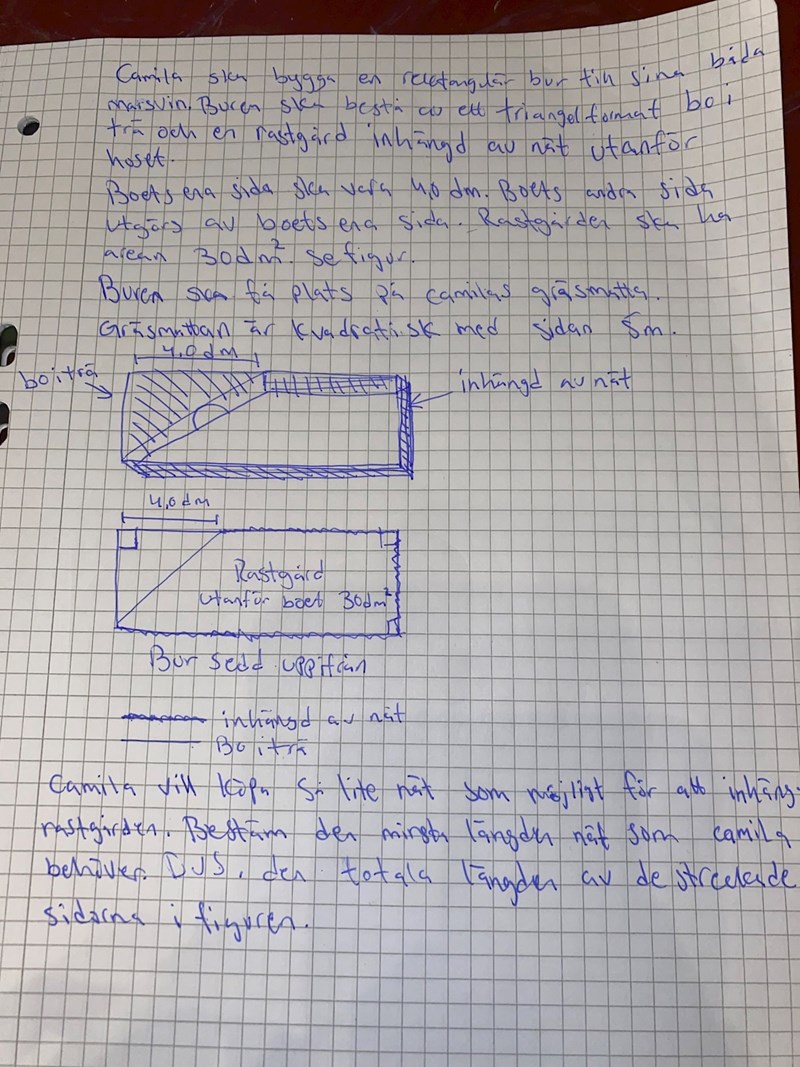 Camila ska bygga en rektangulär bur till sina båda
marsvin. Buren ska bestå av ett triangelformat bo i
trä och en rastgård inhängd av nät utanför
hoset.
Boets ena sida ska vara 4,0 dm. Boets andra sida
utgörs av boets ena sida. Rastgården ska ha
arean 30dm². se figur.
Buren ska få plats på camilas gräsmatta.
Gräsmattan är kvadratisk med sidan 5m.
4,0 dm
bo i trä
inhängd av nät
4,0 dm
Rastgård
utanför boet 30dm²
Bur sedd uppifrån
inhängd av nät
Bo i trä
Camila vill köpa så lite nät som möjligt för att inhäng
rastgården. Bestäm den minsta längden nät som camila
behöver. DVS, den totala längden av de streckade
sidorna i figuren.